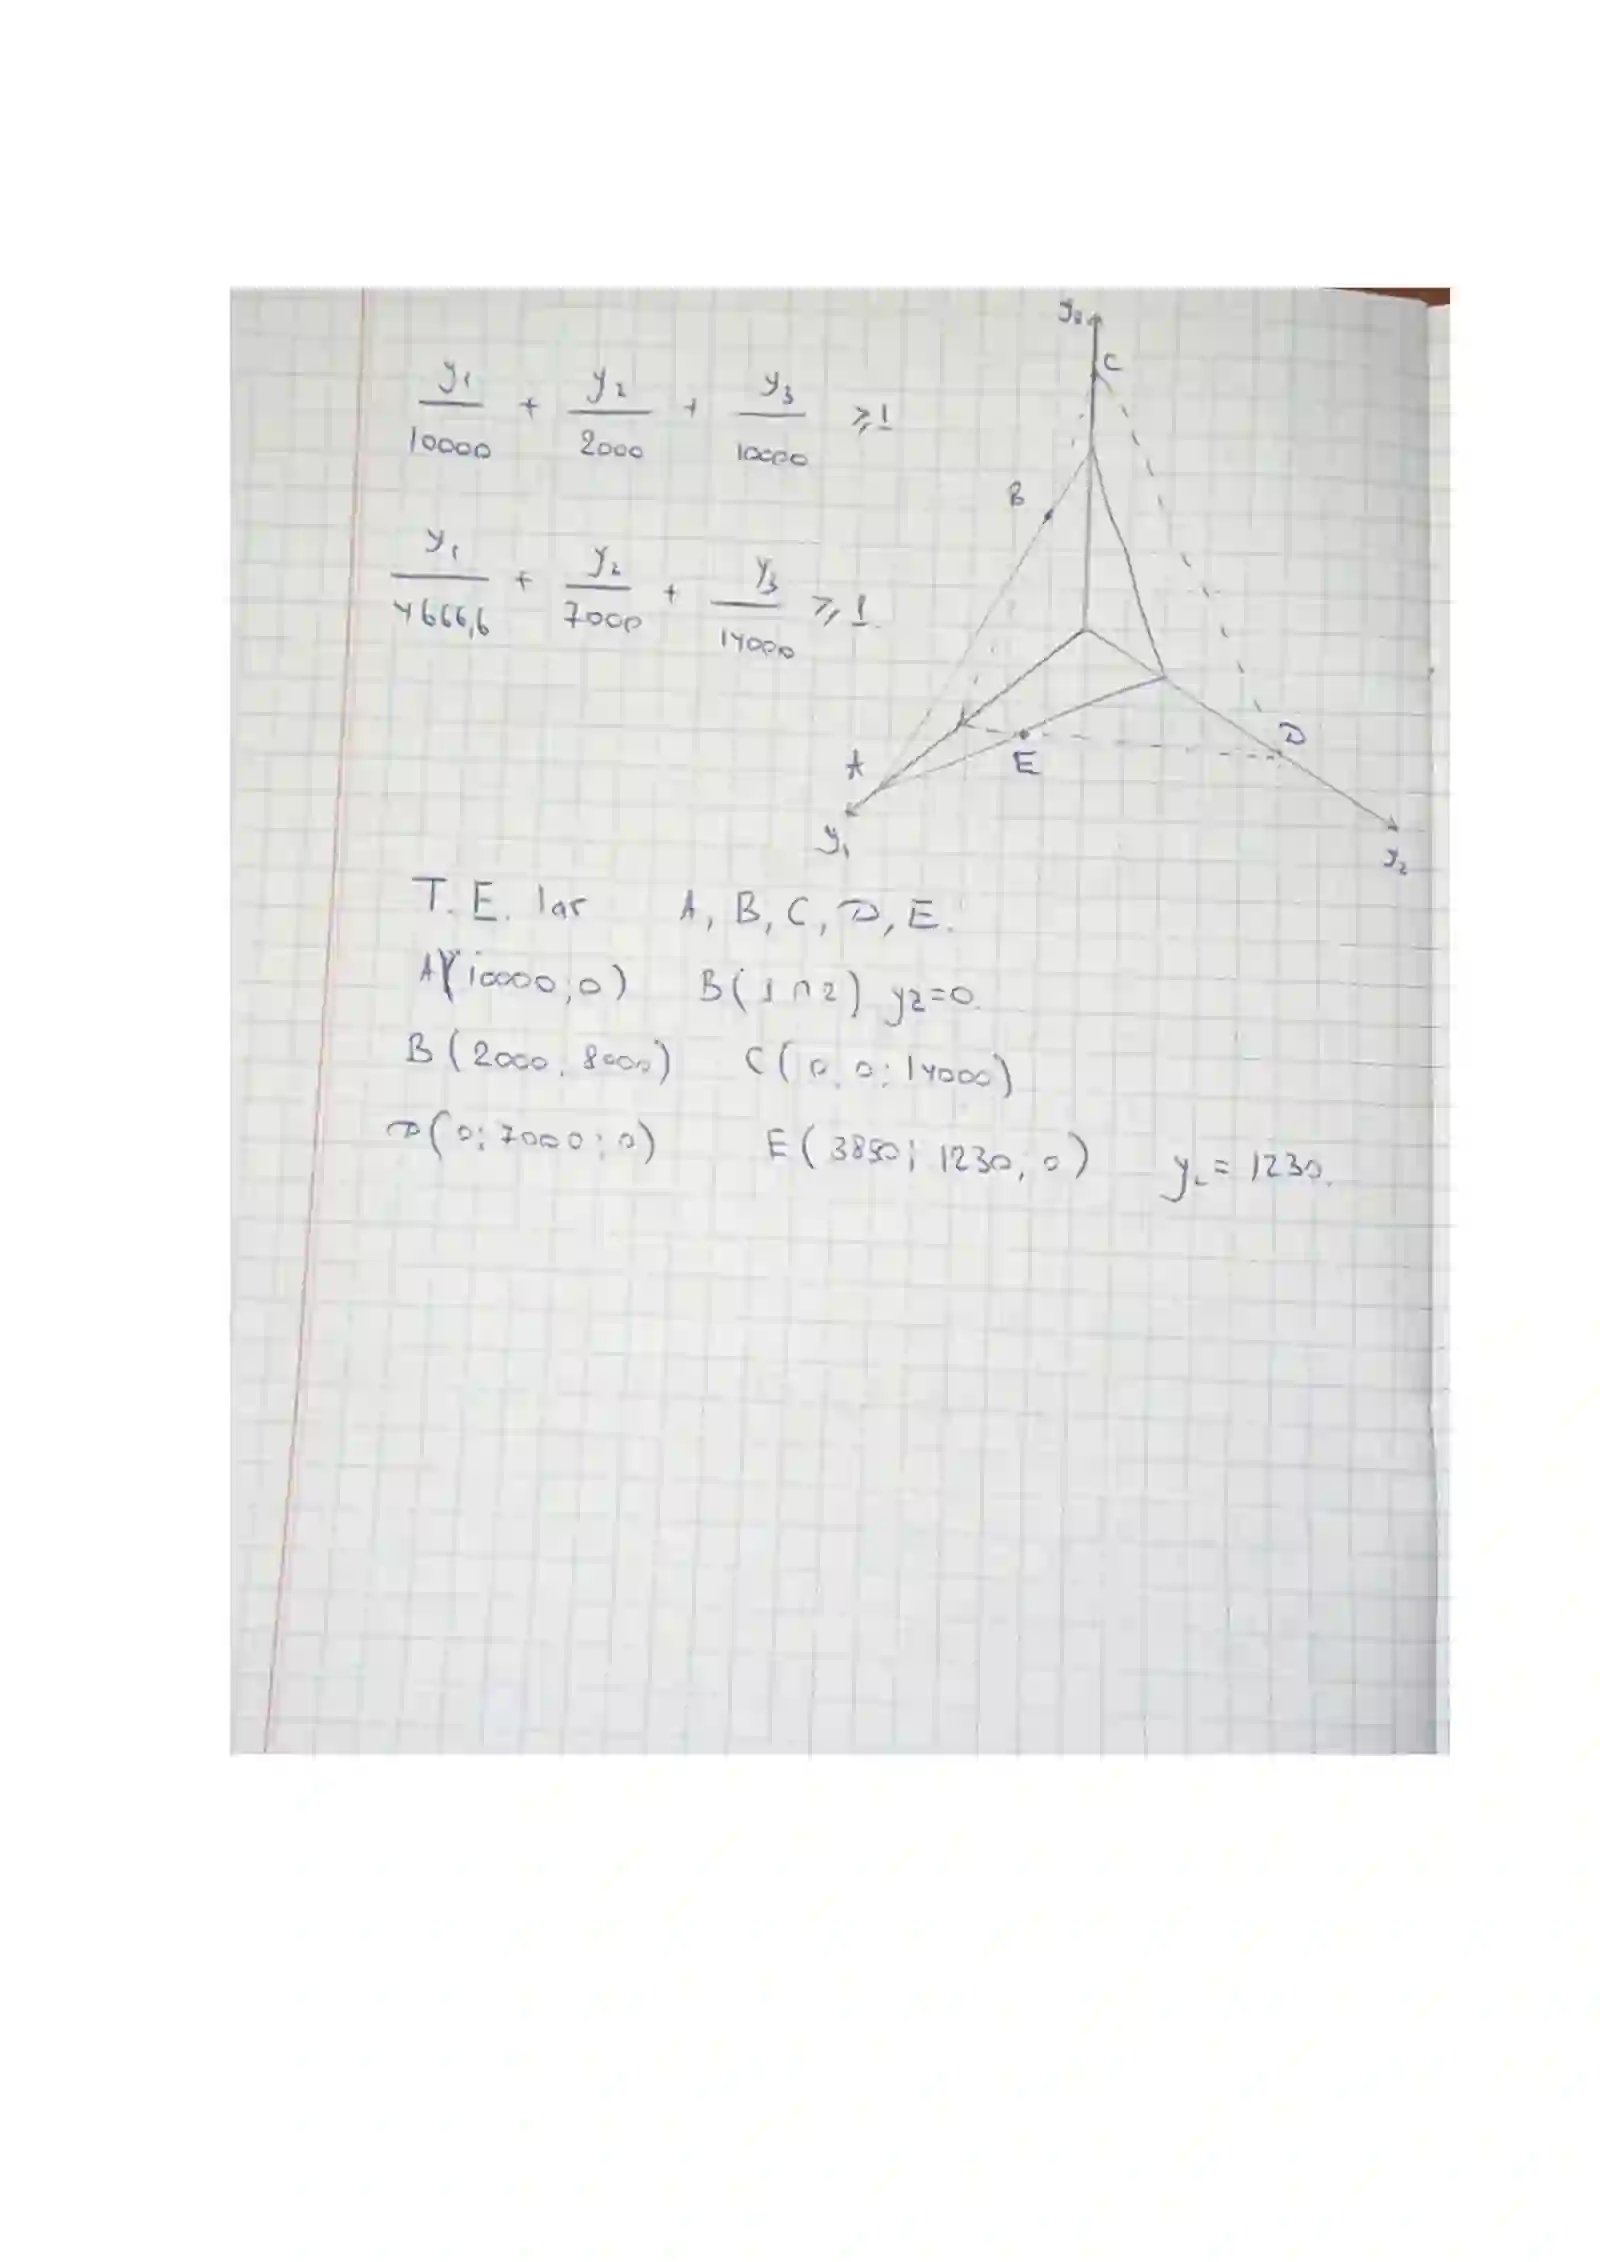 y₁/10000 + y₂/2000 + y₃/10000 ≥ 1
y₁/4666,6 + y₂/7000 + y₃/14000 ≥ 1.
y₃
C
B
D
E
A
y₁
y₂
T.E. lar A, B, C, D, E.
A(10000;0) B(1∩2) y₂=0.
B(2000, 8000) C(0,0;14000)
D(0;7000;0) E(3850; 1230; 0) y₂=1230.